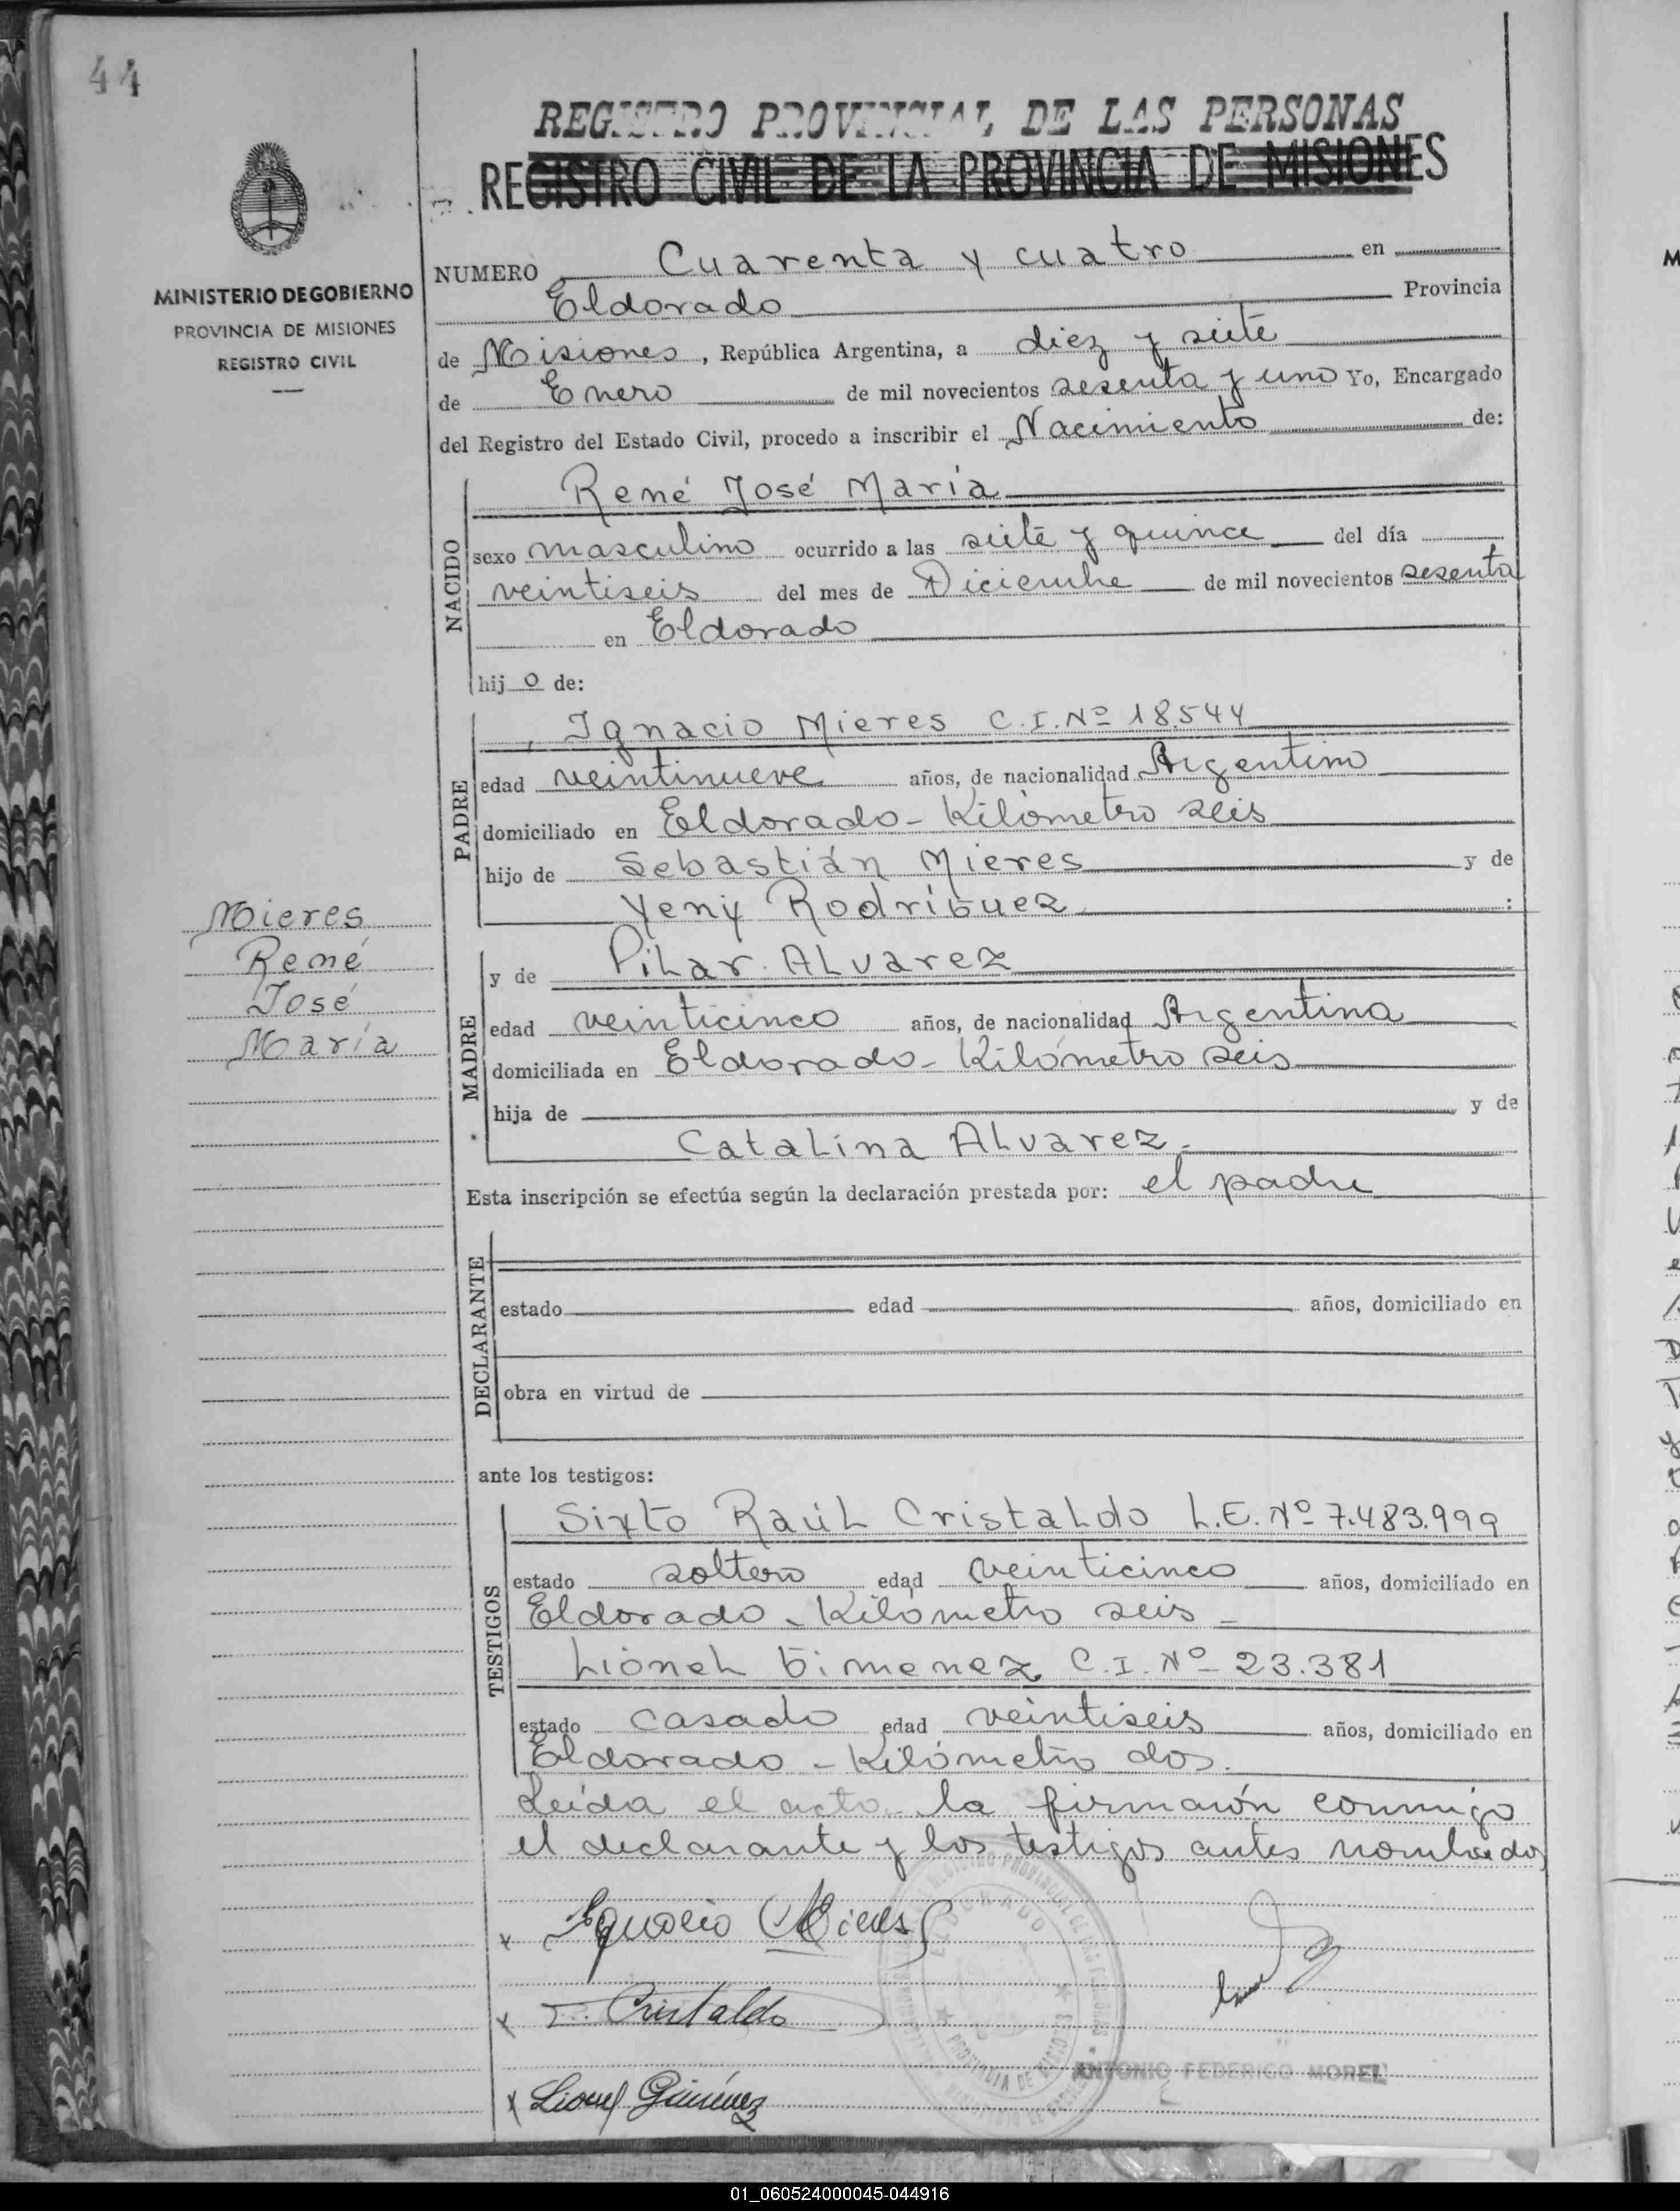 44
REGISTRO PROVINCIAL DE LAS PERSONAS
REGISTRO CIVIL DE LA PROVINCIA DE MISIONES
MINISTERIO DE GOBIERNO
PROVINCIA DE MISIONES
REGISTRO CIVIL
NUMERO Cuarenta y cuatro en
Eldorado Provincia
de Misiones, República Argentina, a diez y siete
de Enero de mil novecientos sesenta y uno Yo, Encargado
del Registro del Estado Civil, procedo a inscribir el Nacimiento de:
NACIDO
René José María
sexo masculino ocurrido a las siete y quince del día
veintiseis del mes de Diciembre de mil novecientos sesenta
en Eldorado
hijo de:
PADRE
Ignacio Mieres C.I. Nº 18.544
edad veintinueve años, de nacionalidad Argentino
domiciliado en Eldorado - Kilómetro seis
hijo de Sebastián Mieres y de
Yeny Rodríguez :
Mieres
René
José
María
MADRE
y de Pilar Alvarez
edad veinticinco años, de nacionalidad Argentina
domiciliada en Eldorado - Kilómetro seis
hija de y de
Catalina Alvarez.
Esta inscripción se efectúa según la declaración prestada por: el padre
DECLARANTE
estado edad años, domiciliado en
obra en virtud de
ante los testigos:
TESTIGOS
Sixto Raúl Cristaldo L.E. Nº 7.483.999
estado soltero edad veinticinco años, domiciliado en
Eldorado - Kilómetro seis -
Lionel Gimenez C.I. Nº 23.381
estado casado edad veintiseis años, domiciliado en
Eldorado - Kilómetro dos.
Leída el acto la firmarón conmigo
el declarante y los testigos antes nombrados
x Ignacio Mieres
x Cristaldo
x Lionel Giménez
ELDORADO
ANTONIO FEDERICO MOREL
01_060524000045-044916